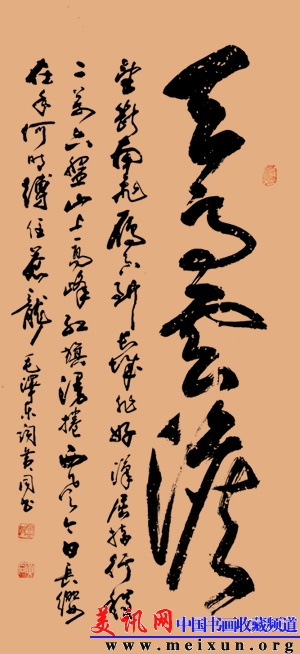 天高雲澹
望断南飛雁不到长城非好漢屈指行程
二萬六盤山上高峰红旗漫捲西风今日長纓
在手何时缚住蒼龍 毛澤东词 同书
美讯网 中国书画收藏频道
www.meixun.org